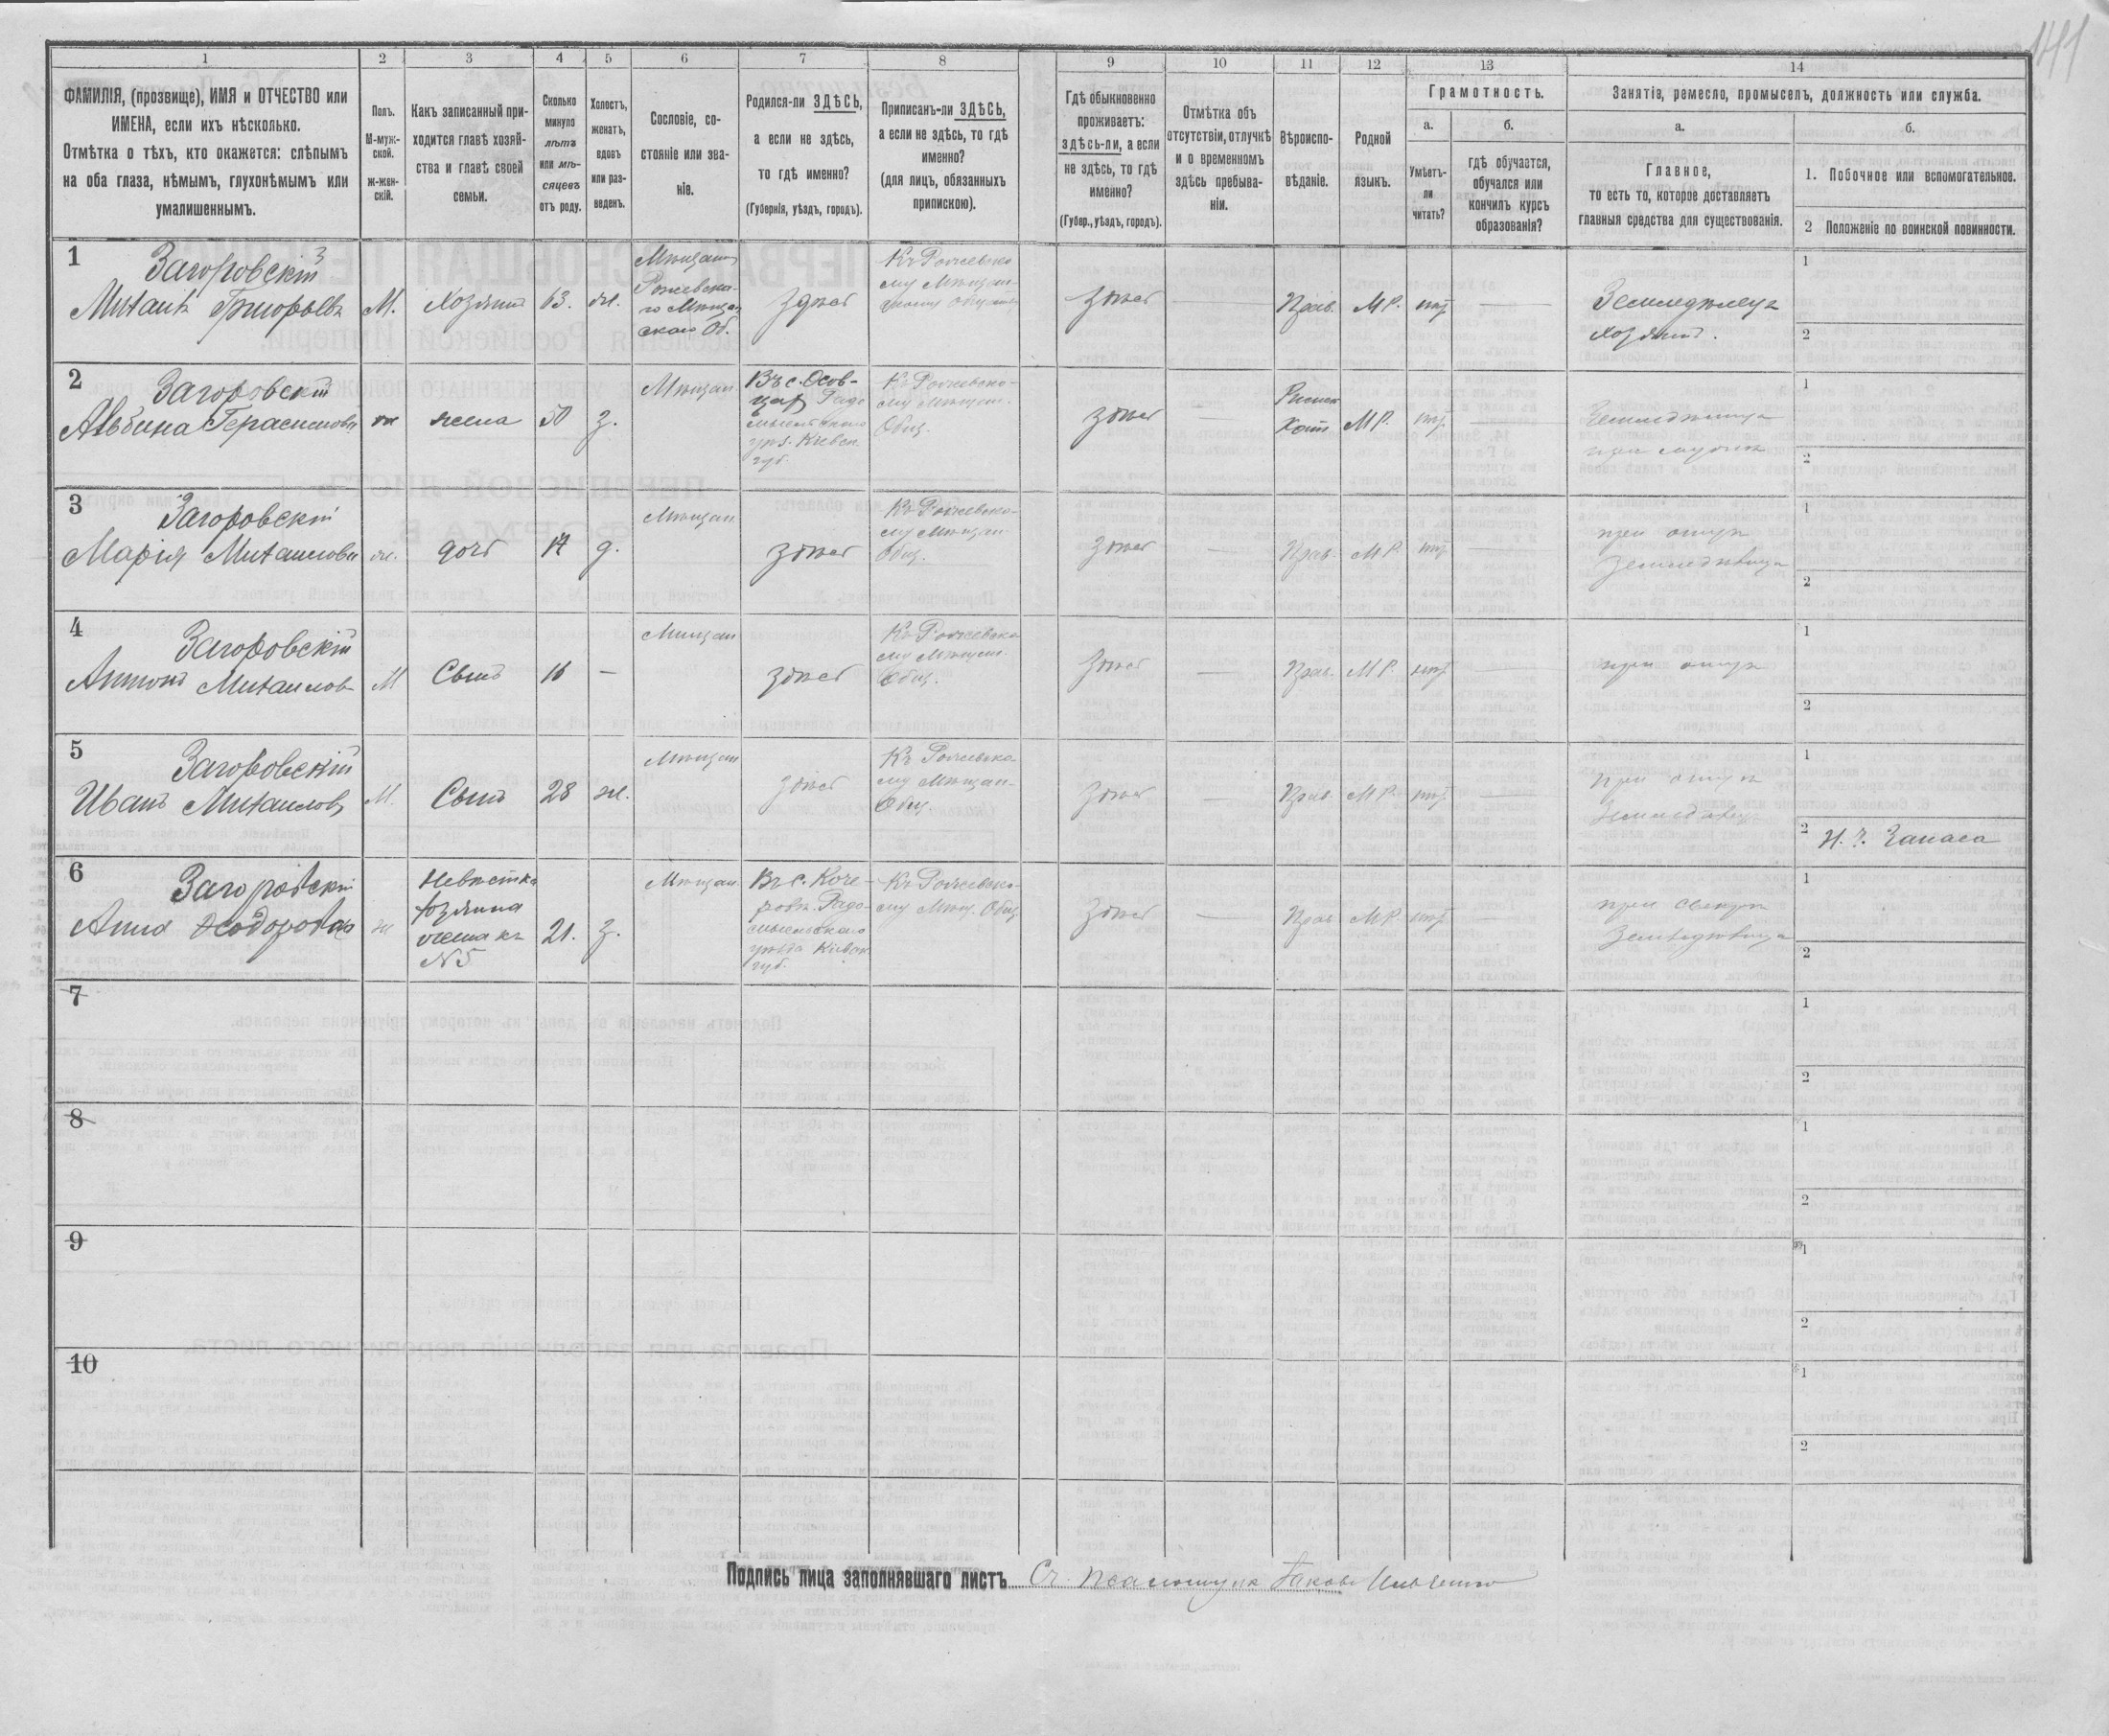 141
1 2 3 4 5 6 7 8 9 10 11 12 13 14
ФАМИЛІЯ, (прозвище), ИМЯ и ОТЧЕСТВО или
ИМЕНА, если ихъ нѣсколько.
Отмѣтка о тѣхъ, кто окажется: слѣпымъ
на оба глаза, нѣмымъ, глухонѣмымъ или
умалишеннымъ.
Полъ.
М-муж-
ской.
Ж-жен-
скій.
Какъ записанный при-
ходится главѣ хозяй-
ства и главѣ своей
семьи.
Сколько
минуло
лѣтъ
или мѣ-
сяцевъ
отъ роду.
Холостъ,
женатъ,
вдовъ
или раз-
веденъ.
Сословіе, со-
стояніе или зва-
ніе.
Родился-ли ЗДѢСЬ,
а если не здѣсь,
то гдѣ именно?
(Губернія, уѣздъ, городъ).
Приписанъ-ли ЗДѢСЬ,
а если не здѣсь, то гдѣ
именно?
(для лицъ, обязанныхъ
припискою).
Гдѣ обыкновенно
проживаетъ:
здѣсь-ли, а если
не здѣсь, то гдѣ
именно?
(Губер., уѣздъ, городъ).
Отмѣтка объ
отсутствіи, отлучкѣ
и о временномъ
здѣсь пребыва-
ніи.
Вѣроиспо-
вѣданіе.
Родной
языкъ.
Грамотность.
а.
Умѣетъ-
ли
читать?
б.
гдѣ обучается,
обучался или
кончилъ курсъ
образованія?
Занятіе, ремесло, промыселъ, должность или служба.
а.
Главное,
то есть то, которое доставляетъ
главныя средства для существованія.
б.
1. Побочное или вспомогательное.
2 Положеніе по воинской повинности.
1
Загоровскій
Михаилъ Григорьевъ
М. Хозяинъ 63. ж.
Мѣщанинъ
здѣсь
здѣсь
Прав. М Р. нѣт
Земледѣлецъ
хозяинъ.
1
2
2
Загоровскій
Альбина Герасимова
ж жена 50 з.
Мѣщан.
Въ с. Осов-
цах Радо
мысльского
уѣз. Кіевск.
губ.
Къ Рожевско-
му Мѣщан.
Общ.
здѣсь —
Римск
Кат М Р. нѣт —
1
2
3
Загоровскій
Марія Михаилова
ж. дочь 17 д.
Мѣщан.
здѣсь
Къ Рожевско-
му Мѣщан
Общ.
здѣсь —
Прав. М Р. нѣт —
при отцѣ
1
2
4
Загоровскій
Антонъ Михаилов
М Сынъ 16 —
Мѣщан
здѣсь
Къ Рожевско
му Мѣщан.
Общ.
здѣсь —
Прав. М Р. нѣт —
при отцѣ
1
2
5
Загоровскій
Иванъ Михаиловъ
М. Сынъ 28 ж.
Мѣщан
здѣсь
Къ Рожевско
му Мѣщан-
Общ.
здѣсь —
Прав. М Р. нѣт —
при отцѣ
1
2 Запаса
6
Загоровскій
Анна Ѳеодорова
ж
Невѣстка
хозяина
жена къ
N 5
21. з.
Мѣщан.
Въ с. Коче-
ровѣ. Радо-
мысльского
уѣзда Кіевск
губ.
Къ Рожевско-
му Мѣщ. Общ.
здѣсь —
Прав М Р. нѣт —
при свекрѣ
1
2
7
1
2
8
1
2
9
1
2
10
1
2
Подпись лица заполнявшаго листъ Сч. Псаломщикъ Іаковъ